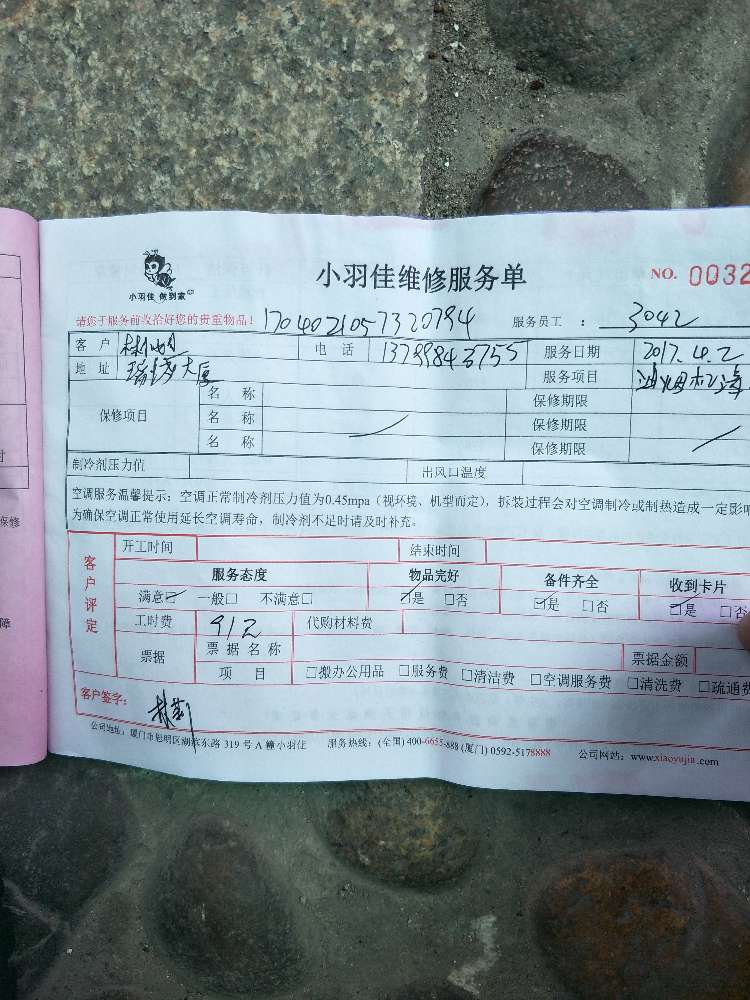 小羽佳维修服务单
小羽佳 做到家
NO. 0032
请您于服务前收拾好您的贵重物品! 1704021057320794 服务员工 : 3042
客 户 电 话 13799843755 服务日期 2017.4.2
地 址 大厦 服务项目 油烟机清
保修项目
名 称 保修期限
名 称 保修期限
名 称 保修期限
制冷剂压力值 出风口温度
空调服务温馨提示: 空调正常制冷剂压力值为0.45mpa (视环境、机型而定), 拆装过程会对空调制冷或制热造成一定影响
为确保空调正常使用延长空调寿命, 制冷剂不足时请及时补充。
客户评定
开工时间 结束时间
服务态度 物品完好 备件齐全 收到卡片
满意☑ 一般□ 不满意□ ☑是 □否 ☑是 □否 ☑是 □否
工时费 912 代购材料费
票据 票 据 名 称 票据金额
项 目 □搬办公用品 □服务费 □清洁费 □空调服务费 □清洗费 □疏通费
客户签字:
公司地址: 厦门市思明区湖滨东路 319 号 A 幢小羽佳 服务热线: (全国) 400-6655-888 (厦门) 0592-5178888 公司网站: www.xiaoyujia.com
保修
障